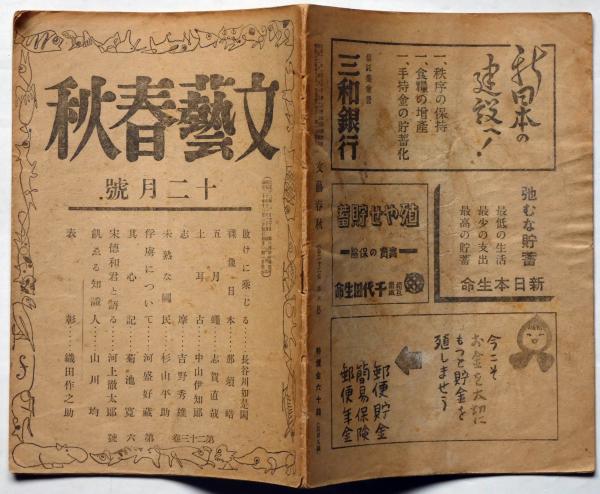 文藝春秋
十二月號
敗けに乘じる 長谷川如是閑
裸像日本 那須皓
五月蠅 志賀直哉
土耳古 中山伊知郎
志摩 吉野秀雄
未熟な國民 杉山平助
俘虜について 河盛好藏
其心記 菊池寛
宋德和君と語る 河上徹太郎
飢ゑる知識人 山川均
表彰 織田作之助
第二十三卷 第六號
文藝春秋
新日本の
建設へ!
一、秩序の保持
一、食糧の增產
一、手持金の貯蓄化
三和銀行
弛むな貯蓄
最低の生活
最少の支出
最高の貯蓄
新日本生命
殖やせ貯蓄
千代田生命
今こそ
お金を大切に
もつと貯金を
殖しませう
郵便貯金
簡易保険
郵便年金